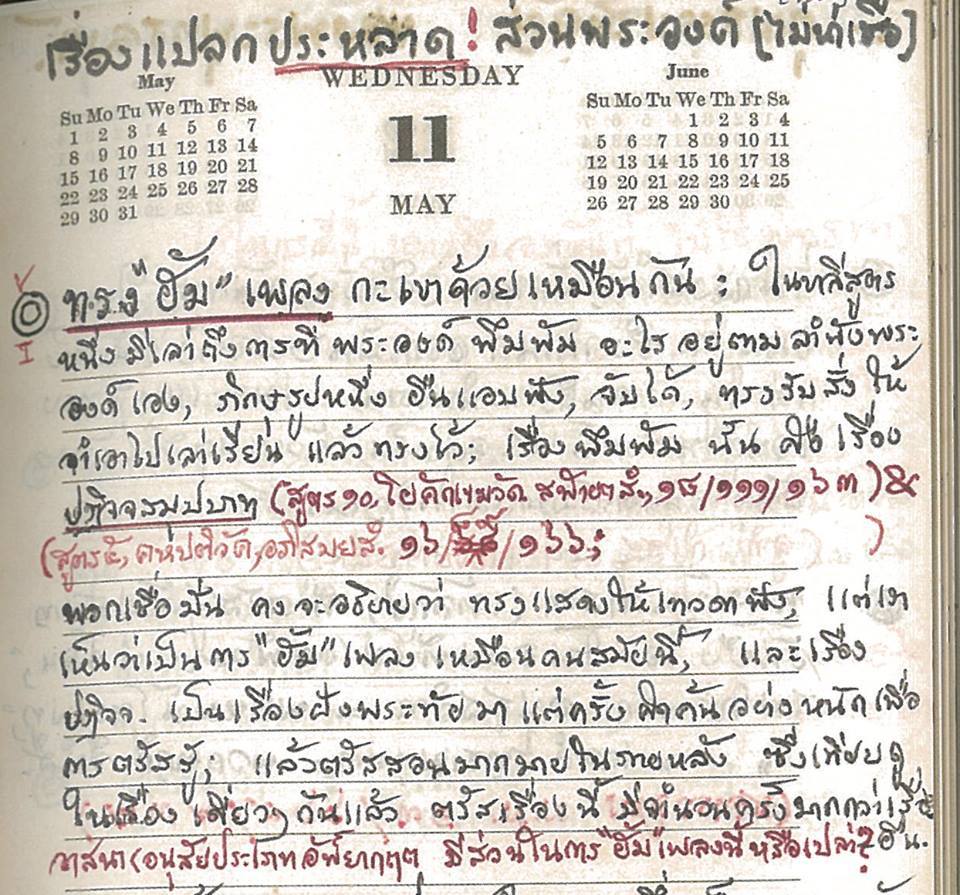 เรื่องแปลกประหลาด! ส่วนพระองค์ (ไม่น่าเชื่อ)
May WEDNESDAY June
Su Mo Tu We Th Fr Sa 11 Su Mo Tu We Th Fr Sa
1 2 3 4 5 6 7 1 2 3 4
8 9 10 11 12 13 14 5 6 7 8 9 10 11
15 16 17 18 19 20 21 12 13 14 15 16 17 18
22 23 24 25 26 27 28 19 20 21 22 23 24 25
29 30 31 MAY 26 27 28 29 30
ทรง "ฮัม" เพลง กะเขาด้วยเหมือนกัน : ในบาลีสูตร
หนึ่ง มีเล่าถึงการที่ พระองค์ พึมพัม อะไร อยู่ตาม ลำพังพระ
องค์เอง, ภิกษุรูปหนึ่ง ยืนแอบฟัง, จับได้, ทรงรับสั่ง ให้
จำเอาไปเล่าเรียน แล้วทรงไว้; เรื่องพึมพัม นั้น คือ เรื่อง
ปฏิจจสมุปบาท (สูตร ๑๐, โยคักเขมวัค. สฬายตสํ., ๑๘/๑๑๑/๑๖๓) &
(สูตร ๕, คหปติวัค, อภิสมยสํ. ๑๖/ /๑๖๖; )
พวกเชื่อมั่น คงจะอธิบายว่า ทรงแสดงให้เทวดาฟัง, แต่เรา
เห็นว่าเป็นการ "ฮัม" เพลง เหมือนคนสมัยนี้, และเรื่อง
ปฏิจจ. เป็นเรื่องฝังพระทัยมา แต่ครั้ง ค้นคว้าอย่างหนักเพื่อ
การตรัสรู้, แล้วตรัสสอนมากมายในภายหลัง ซึ่งเทียบดู
ในเรื่อง เดียวๆ กันแล้ว ตรัสเรื่องนี้ มีจำนวนครั้งมากกว่าเรื่อง
อื่น.
วาสนา (อนุสัยประเภทอัพยากฤต มีส่วนในการ "ฮัม" เพลงนี้หรือเปล่า?